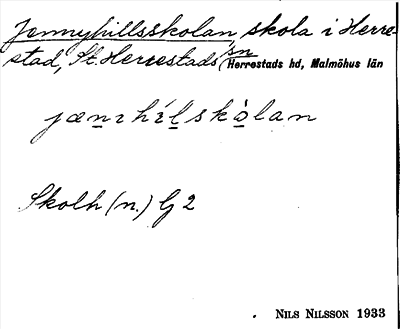 Jennyhillsskolan, skola i Herre-
stad, St. Herrestads sn
Herrestads hd, Malmöhus län
jæn̲ɪhɪ́l̲skɔ̀lan
Skolh (n.) G 2
NILS NILSSON 1933